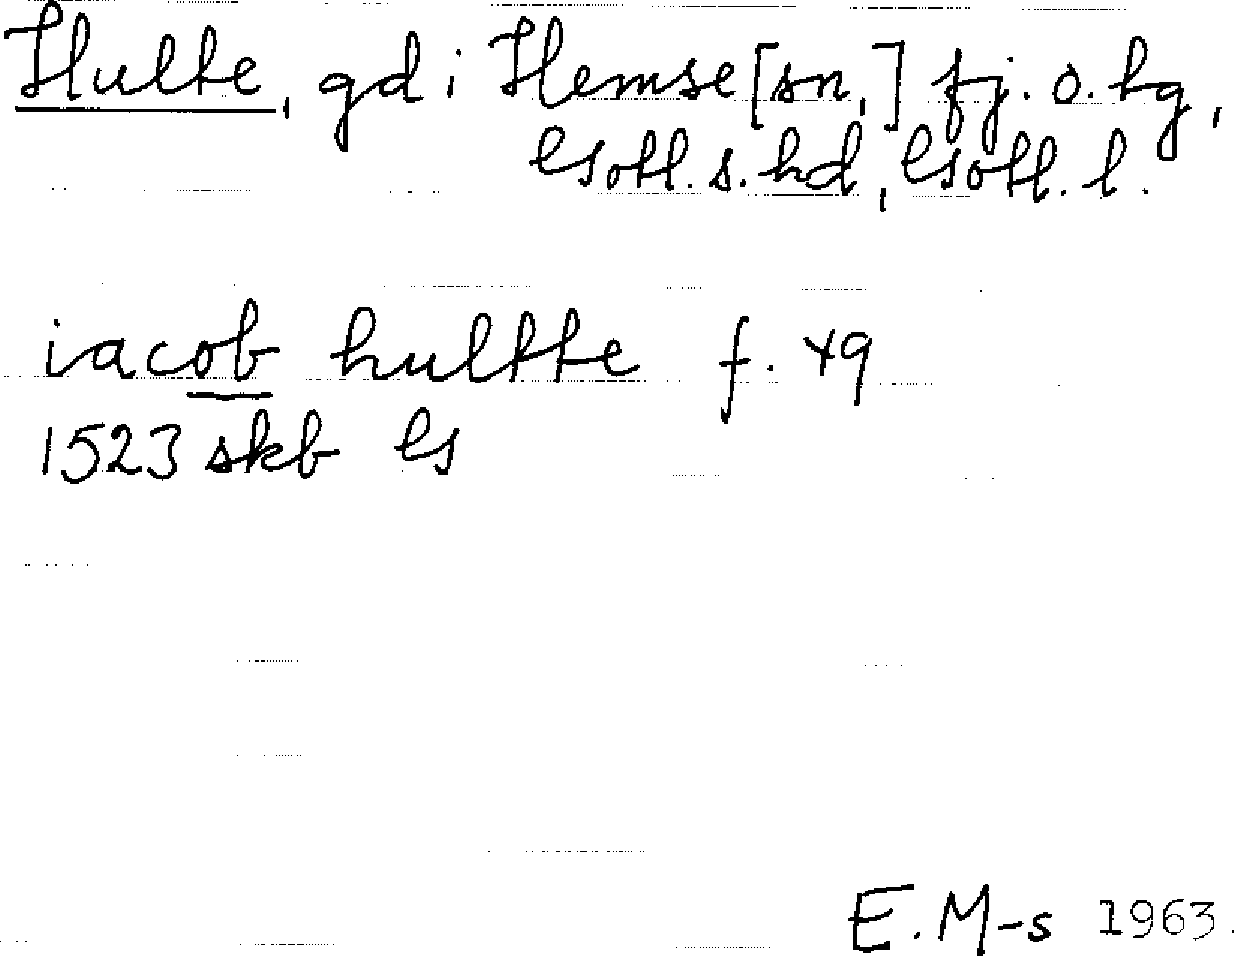 Hulte, gd i Hemse [sn,] fj. o. tg,
Gotl. s. hd, Gotl. l.
iacob hultte f. 49
1523 skb G
E.M-s 1963.